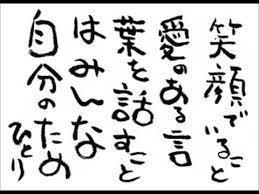 笑顔でいること
愛のある言
葉を話すこと
はみんな
自分のため
ひとり